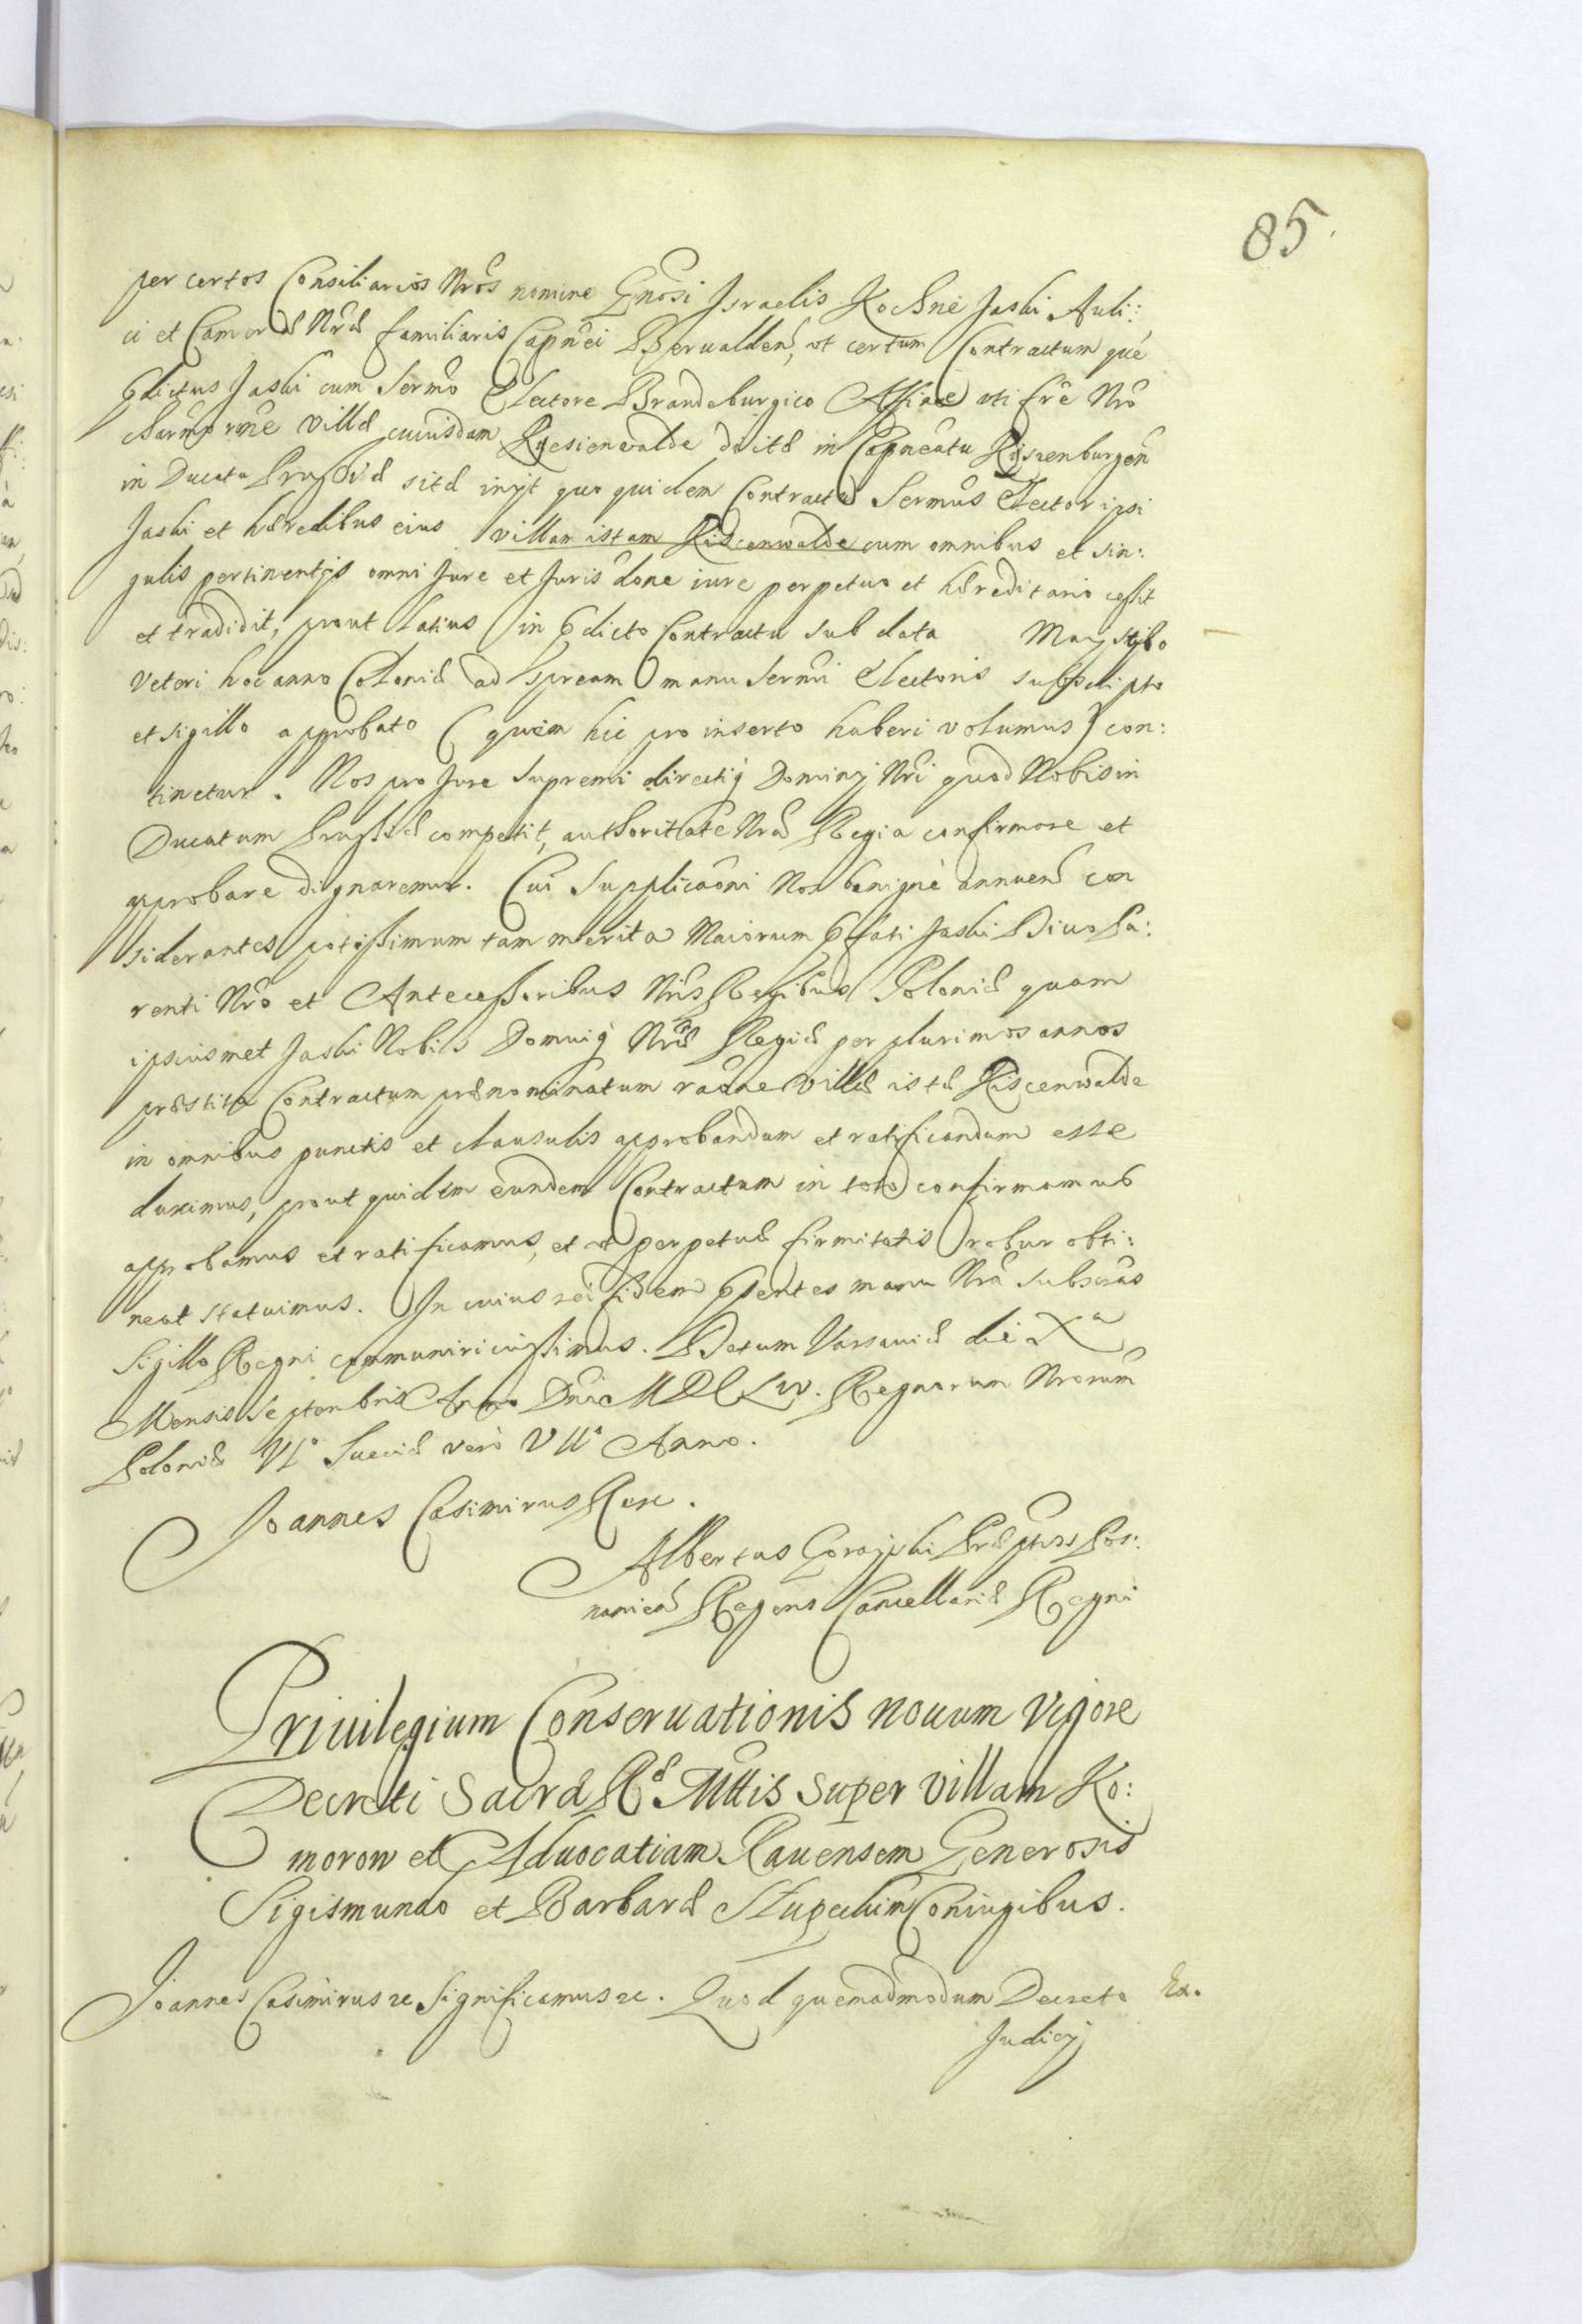 85.
per certos Consiliarios Nros nomine Gnosi Israelis Kochne Jaski Auli:
ci et Camerae Nrae familiaris Capnei Berualden, ut certum Contractum que
pdictus Jaski cum Sermo Electore Brandeburgico Affine ati fre Nro
charmo rone villae cuiusdam Ryesienwalde dictae in Capneatu Rijsenburgen
in Ducatu Prussiae sitae inijt quo quidem Contractu Sermus Elector ipsi
Jaski et haeredibus eius villam istam Riscenwalde cum omnibus et sin:
gulis pertinentijs omni Jure et Juris done iure perpetuo et haereditario cessit
et tradidit, prout latius in pdicto Contractu sub data Maij stylo
veteri hoc anno Coloniae ad Spream manu Sermi Electoris subscripto
et sigillo approbato (quem hic pro inserto haberi volumus) con:
tinetur. Nos pro Jure supremi directiq Dominij Nri quod Nobis in
Ducatum Prussiae competit, authoritate Nra Regia confirmare et
approbare dignaremur. Cui Supplicaoni Nos benigne annuen con
siderantes potissimum tam merita Maiorum pfati Jaski Diuo Pa:
renti Nro et Antecessoribus Nris Regibus Poloniae quam
ipsiusmet Jaski Nobis Domuiq Nrae Regiae per plurimos annos
praestita Contractum praenominatum raone villae istae Riscenwalde
in omnibus punctis et clausulis approbandum et ratificandum esse
duximus, prout quidem eundem Contractum in toto confirmamus
approbamus et ratificamus, et ut perpetuae firmitatis robur obti:
neat statuimus. In cuius rei fidem pntes manu Nra subscras
Sigillo Regni communiri iussimus. Datum Varsauiae die Xa
Mensis Septembris Anno Dni MDCLIV. Regnorum Nrorum
Poloniae VIo Sueciae vero VIIo Anno.
Joannes Casimirus Rex.
Albertus Gorajski Praeptus Pos:
naniens Regens Cancellariae Regni
Priuilegium Conseruationis nouum vigore
Decreti Sacrae Rae Mttis super villam Ko:
morow et Aduocatiam Rauensem Generosis
Sigismundo et Barbarae Stupeckim Coniugibus.
Joannes Casimirus etc Significamus etc. Quod quemadmodum Decreto Ex.
Judicij